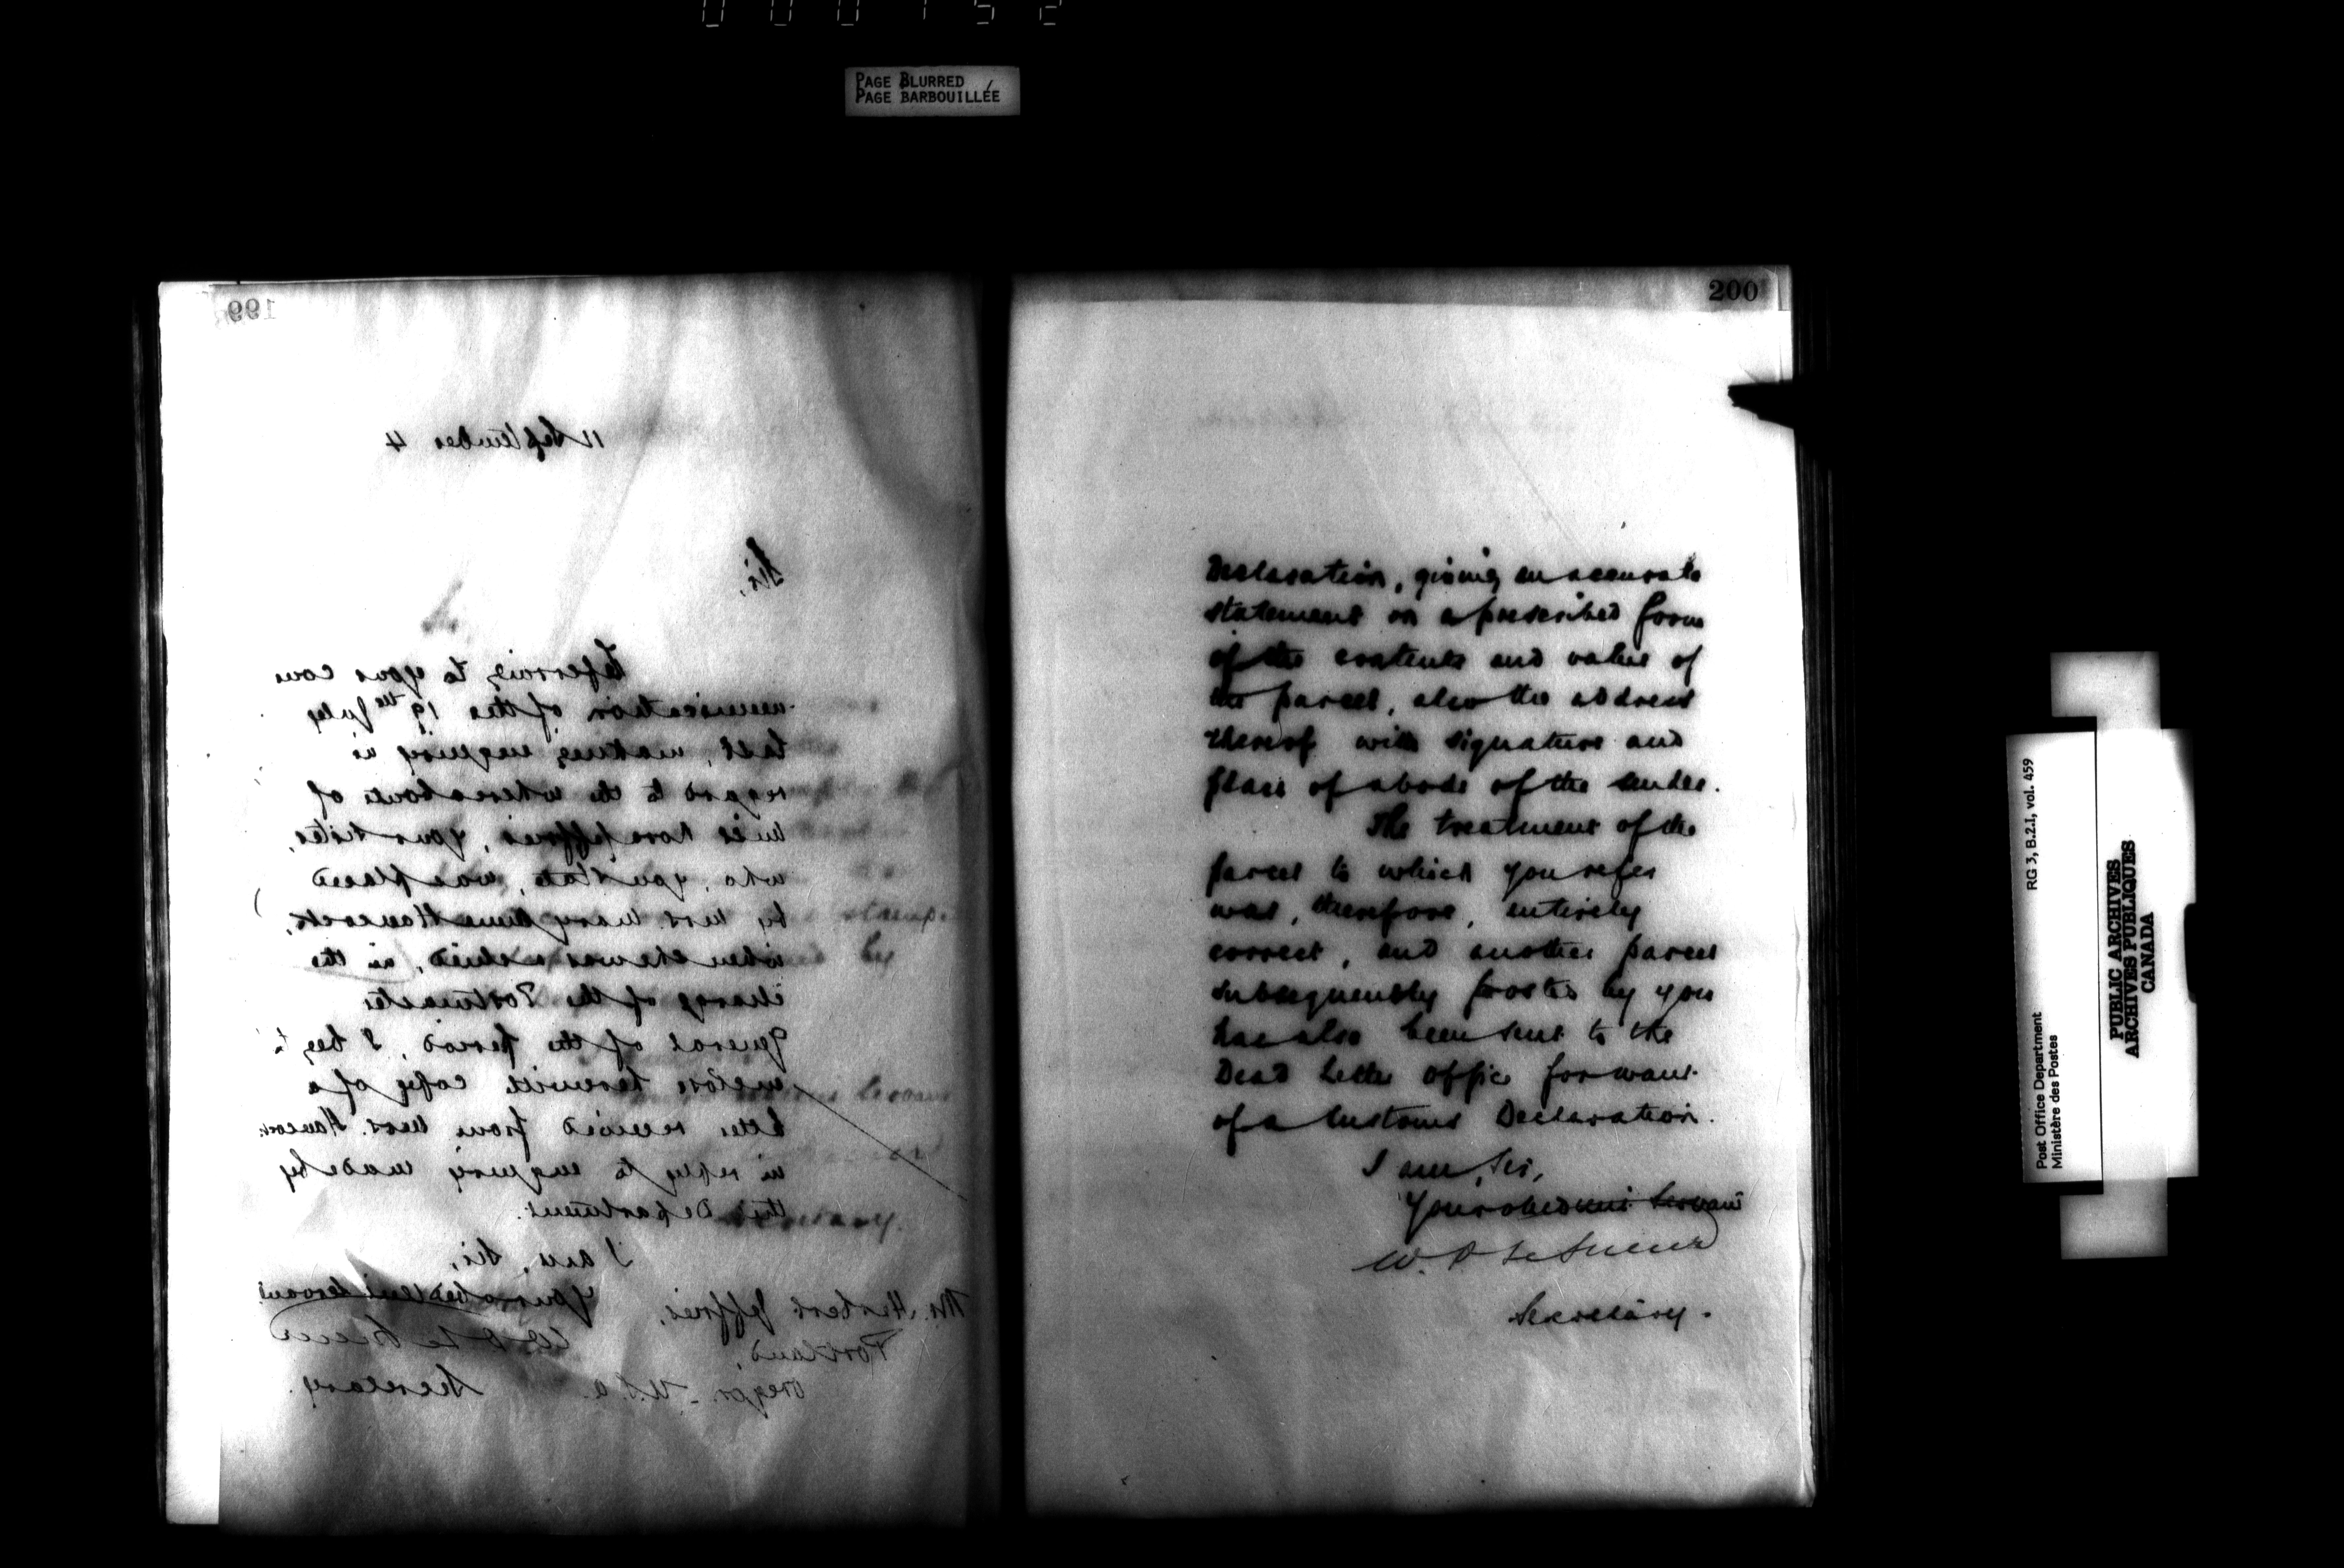 000152
PAGE BLURRED
PAGE BARBOUILLÉE
199
11 September 4
Sir,
Referring to your com
munication of the 19th July
last, making enquiry in
regard to the whereabouts of
Miss Rose Jeffries, your sister,
who, you state, was placed
by Mrs. Mary Anne Hancock,
when she was in the
charge of the Postmaster
General of the period, I beg to
enclose herewith copy of a
letter received from Mrs. Hancock
in reply to enquiry made by
this Department.
I am, Sir,
Your obedient Servant
W D Le Sueur
Secretary.
Mr. Herbert Jeffries,
Portland,
Oregon - U.S.A.
200
Declaration, giving an accurate
statement on a prescribed form
of the contents and value of
the parcel, also the address
thereof with signature and
place of abode of the sender.
The treatment of the
parcel to which you refer
was, therefore, entirely
correct, and another parcel
subsequently posted by you
has also been sent to the
Dead Letter Office for want
of a Customs Declaration.
I am, Sir,
Your obedient Servant
W. D Le Sueur
Secretary.
RG 3, B.2.1, vol. 459
Post Office Department
Ministère des Postes
PUBLIC ARCHIVES
ARCHIVES PUBLIQUES
CANADA